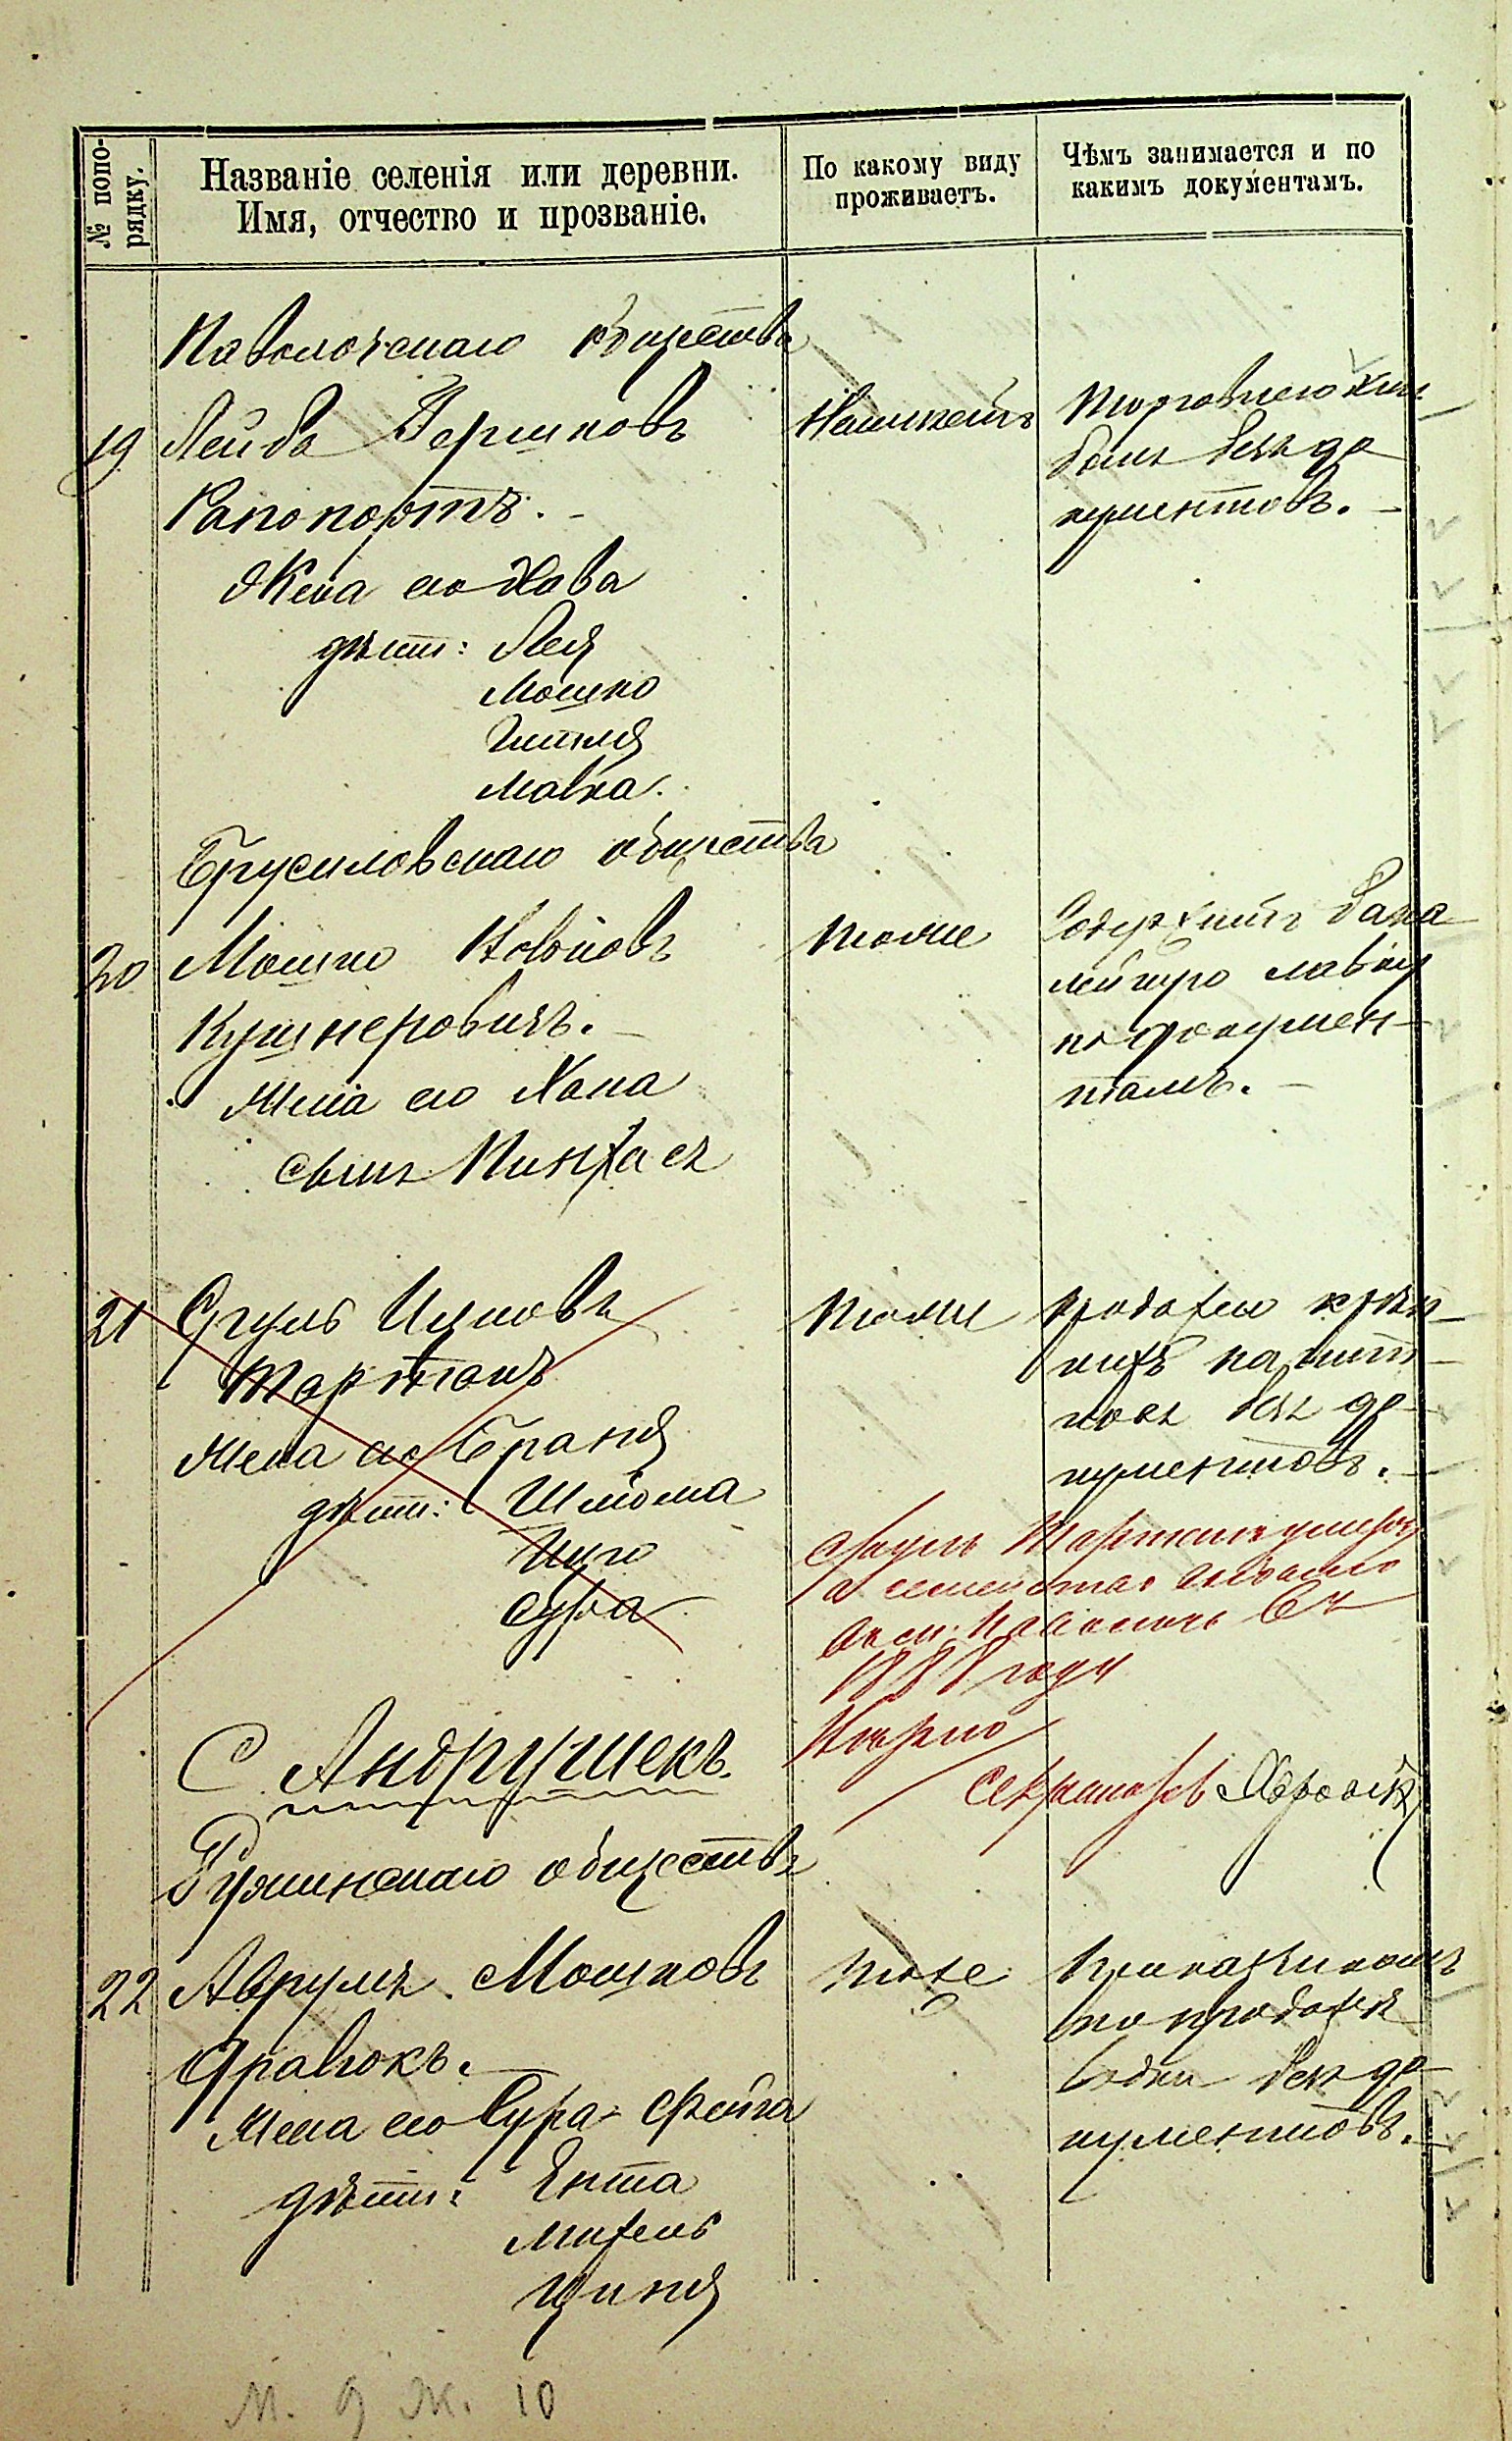 № попо-
рядку.
Названіе селенія или деревни.
Имя, отчество и прозваніе.
По какому виду
проживаетъ.
Чѣмъ занимается и по
какимъ документамъ.
Паволочскаго общества
19 Лейба Гершковъ
Рапопортъ. -
Жена его Хава
дѣти: Лея
Мошко
Гитля
Малка.
Торговлею хлѣ-
бомъ безъ до
кументовъ. -
Брусиловскаго общества
20 Мошко
Кушнеровичъ. -
Жена его Хана
сынъ Пинхасъ
тоже
Содержитъ бака
лейную лавку
по докумен-
тамъ. -
21 Сруль Ицковъ
Тартакъ
Жена его Браня
дѣти: Шліома
Ицко
Сура
тоже
продажею крѣп-
кихъ напит-
ковъ безъ до-
кументовъ. -
Сруль умеръ
а семейство
въ м. Паволочь въ
1888 году
Вѣрно
Секретарь
С. Андрушекъ.
Ружинскаго общества
22 Аврумъ Мошковъ
Правокъ. -
Жена его Сура-Фейга
дѣти: Ента
Михель
Циня
тоже
Приказчикомъ
по продажѣ
водки безъ до-
кументовъ. -
М. 9 Ж. 10